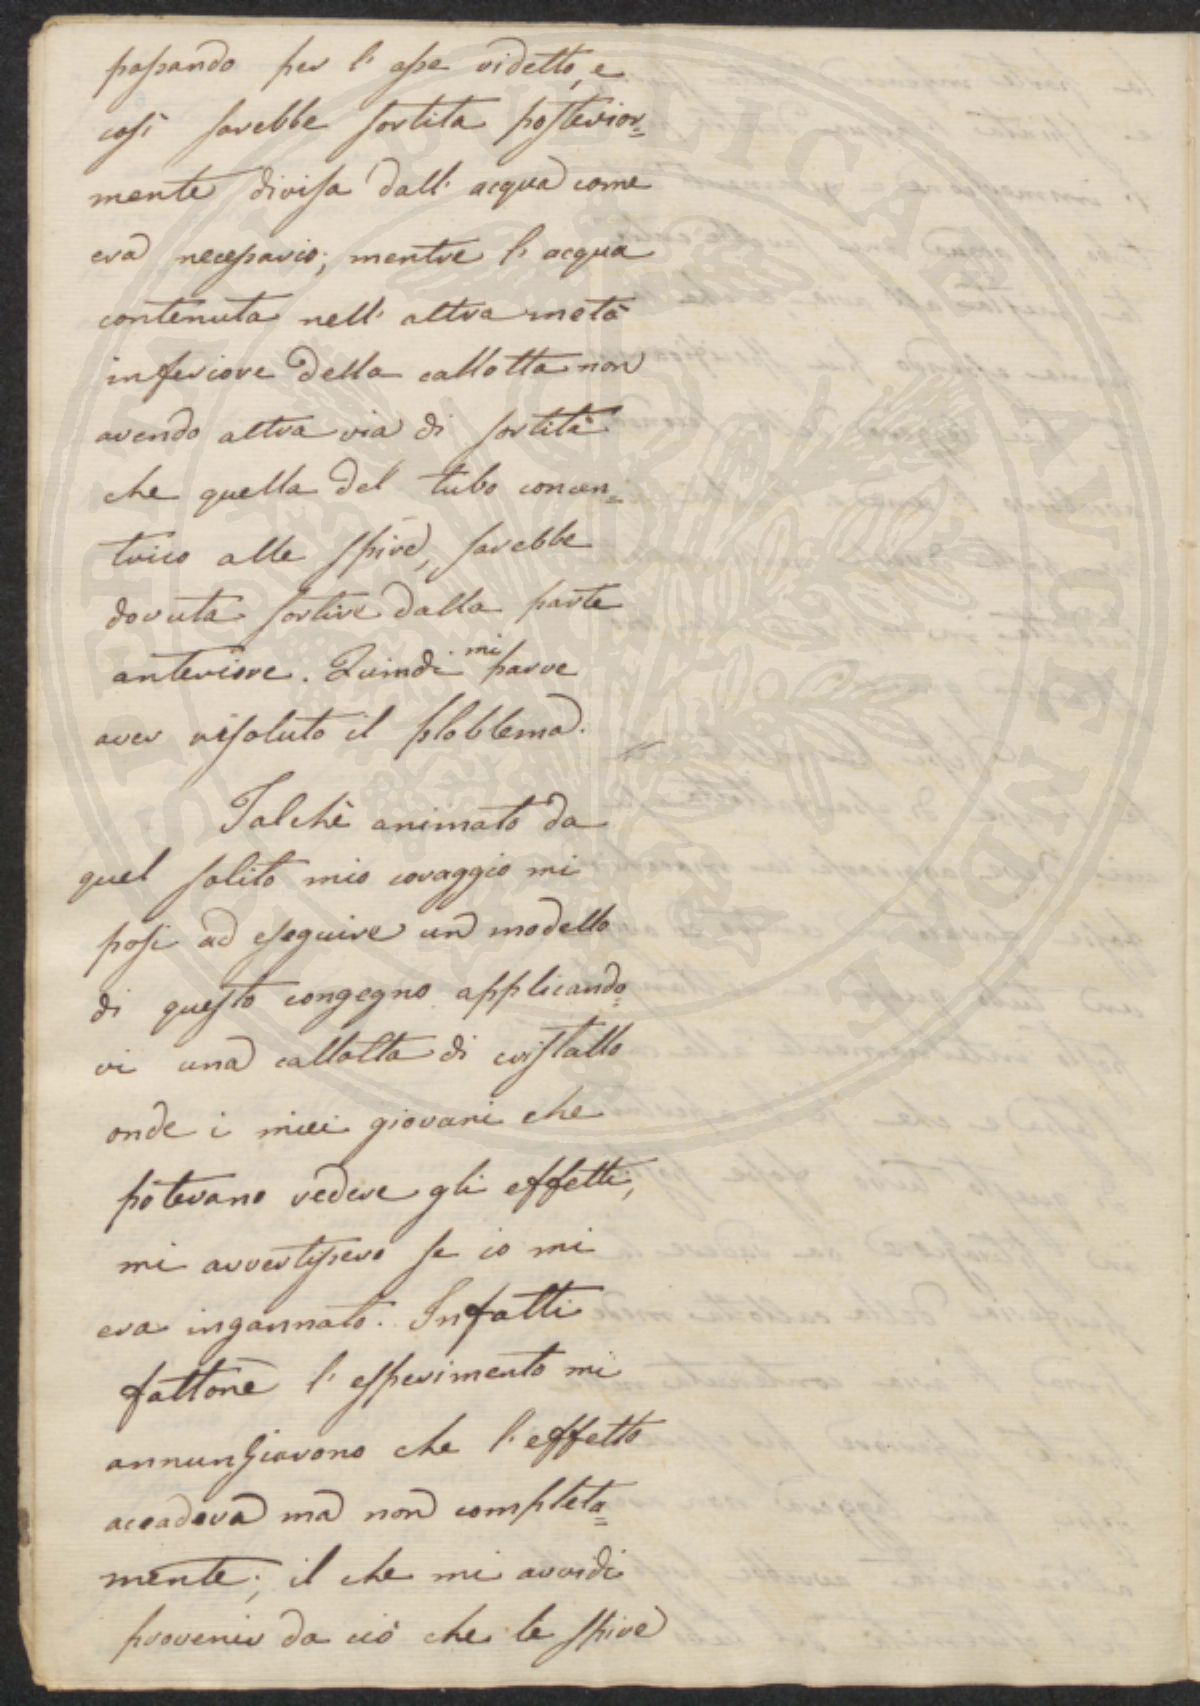 passando per l'asse videtto, e
così sarebbe sortita posterior=
mente divisa dall'acqua come
era necessario; mentre l'acqua
contenuta nell'altra metà
inferiore della callotta non
avendo altra via di sortita
che quella del tubo concen=
trico alle spire, sarebbe
dovuta sortire dalla parte
anteriore. Quindi mi parve
aver risoluto il ploblema.
Talchè animato da
quel solito mio coraggio mi
posi ad eseguire un modello
di questo congegno applicando=
vi una callotta di cristallo
onde i miei giovani che
potevano vedere gli effetti,
mi avvertissero se io mi
era ingannato. Infatti
fattone l'esperimento mi
annunziarono che l'effetto
accadeva ma non completa=
mente; il che mi avvidi
provenir da ciò che le spire